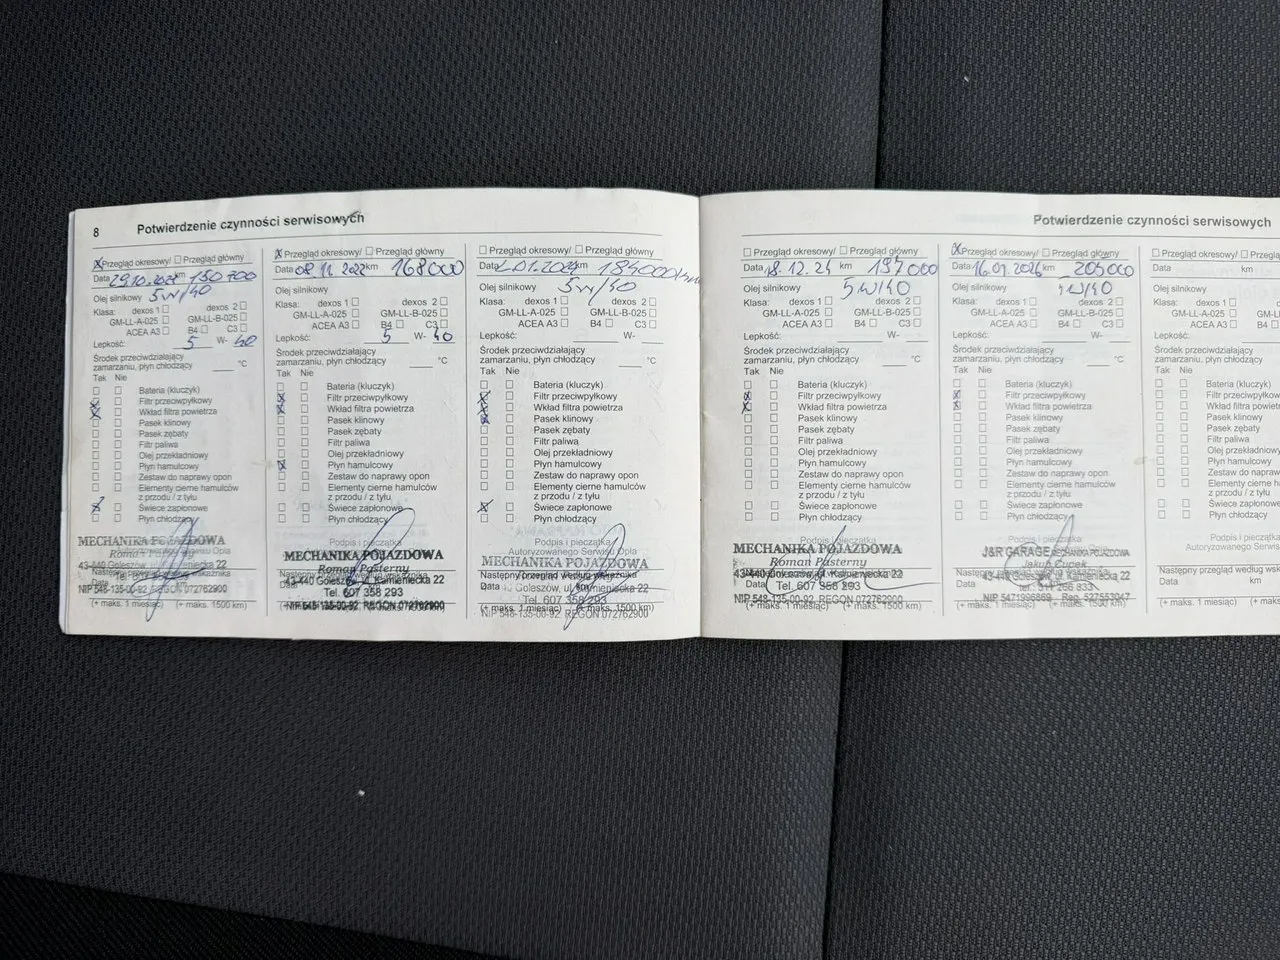 8 Potwierdzenie czynności serwisowych
☒ Przegląd okresowy/ ☐ Przegląd główny
Data 29.10.2021 km 150 700
Olej silnikowy 5w/40
Klasa: dexos 1 ☐ dexos 2 ☐
GM-LL-A-025 ☐ GM-LL-B-025 ☐
ACEA A3 ☐ B4 ☐ C3 ☐
Lepkość: 5 W- 40
Środek przeciwdziałający
zamarzaniu, płyn chłodzący °C
Tak Nie
Bateria (kluczyk)
Filtr przeciwpyłkowy
Wkład filtra powietrza
Pasek klinowy
Pasek zębaty
Filtr paliwa
Olej przekładniowy
Płyn hamulcowy
Zestaw do naprawy opon
Elementy cierne hamulców
z przodu / z tyłu
Świece zapłonowe
Płyn chłodzący
MECHANIKA POJAZDOWA
Roman Pasterny
43-440 Goleszów, ul. Kamieniecka 22
Data
NIP 548-135-00-92, REGON 072762900
(+ maks. 1 miesiąc) (+ maks. 1500 km)
☒ Przegląd okresowy/ ☐ Przegląd główny
Data 08.11.2022 km 168000
Olej silnikowy
Klasa: dexos 1 ☐ dexos 2 ☐
GM-LL-A-025 ☐ GM-LL-B-025 ☐
ACEA A3 ☐ B4 ☐ C3 ☐
Lepkość: 5 W- 40
Środek przeciwdziałający
zamarzaniu, płyn chłodzący °C
Tak Nie
Bateria (kluczyk)
Filtr przeciwpyłkowy
Wkład filtra powietrza
Pasek klinowy
Pasek zębaty
Filtr paliwa
Olej przekładniowy
Płyn hamulcowy
Zestaw do naprawy opon
Elementy cierne hamulców
z przodu / z tyłu
Świece zapłonowe
Płyn chłodzący
Podpis i pieczątka
MECHANIKA POJAZDOWA
Roman Pasterny
43-440 Goleszów, ul. Kamieniecka 22
Tel. 607 358 293
NIP 548-135-00-92, REGON 072762900
☐ Przegląd okresowy/ ☐ Przegląd główny
Data km 184000
Olej silnikowy 5w/40
Klasa: dexos 1 ☐ dexos 2 ☐
GM-LL-A-025 ☐ GM-LL-B-025 ☐
ACEA A3 ☐ B4 ☐ C3 ☐
Lepkość: W-
Środek przeciwdziałający
zamarzaniu, płyn chłodzący °C
Tak Nie
Bateria (kluczyk)
Filtr przeciwpyłkowy
Wkład filtra powietrza
Pasek klinowy
Pasek zębaty
Filtr paliwa
Olej przekładniowy
Płyn hamulcowy
Zestaw do naprawy opon
Elementy cierne hamulców
z przodu / z tyłu
Świece zapłonowe
Płyn chłodzący
Podpis i pieczątka
Autoryzowanego Serwisu Opla
MECHANIKA POJAZDOWA
Data
Tel. 607 358 293
(+ maks. 1 miesiąc) (+ maks. 1500 km)
NIP 548-135-00-92, REGON 072762900
Potwierdzenie czynności serwisowych
☐ Przegląd okresowy/ ☐ Przegląd główny
Data 18.12.24 km 197000
Olej silnikowy 5W/40
Klasa: dexos 1 ☐ dexos 2 ☐
GM-LL-A-025 ☐ GM-LL-B-025 ☐
ACEA A3 ☐ B4 ☐ C3 ☐
Lepkość: W-
Środek przeciwdziałający
zamarzaniu, płyn chłodzący °C
Tak Nie
Bateria (kluczyk)
Filtr przeciwpyłkowy
Wkład filtra powietrza
Pasek klinowy
Pasek zębaty
Filtr paliwa
Olej przekładniowy
Płyn hamulcowy
Zestaw do naprawy opon
Elementy cierne hamulców
z przodu / z tyłu
Świece zapłonowe
Płyn chłodzący
Podpis i pieczątka
MECHANIKA POJAZDOWA
Roman Pasterny
43-440 Goleszów, ul. Kamieniecka 22
Data Tel. 607 358 293
NIP 548-135-00-92, REGON 072762900
☒ Przegląd okresowy/ ☐ Przegląd główny
Data km 205000
Olej silnikowy
Klasa: dexos 1 ☐ dexos 2 ☐
GM-LL-A-025 ☐ GM-LL-B-025 ☐
ACEA A3 ☐ B4 ☐ C3 ☐
Lepkość: W-
Środek przeciwdziałający
zamarzaniu, płyn chłodzący °C
Tak Nie
Bateria (kluczyk)
Filtr przeciwpyłkowy
Wkład filtra powietrza
Pasek klinowy
Pasek zębaty
Filtr paliwa
Olej przekładniowy
Płyn hamulcowy
Zestaw do naprawy opon
Elementy cierne hamulców
z przodu / z tyłu
Świece zapłonowe
Płyn chłodzący
Podpis i pieczątka
J&R GARAGE MECHANIKA POJAZDOWA
43-440 Goleszów, ul. Kamieniecka 22
Data
(+ maks. 1 miesiąc) (+ maks. 1500 km)
☐ Przegląd okresowy/ ☐
Data km
Olej silnikowy
Klasa: dexos 1 ☐
GM-LL-A-025 ☐
ACEA A3 ☐
Lepkość:
Środek przeciwdziałający
zamarzaniu, płyn chłodzący
Tak Nie
Bateria
Filtr
Wkład
Pasek
Pasek
Filtr
Olej
Płyn
Z przodu
Świece
Płyn
Podpis
Autoryzowanego
Następny przegląd według
Data km
(+ maks. 1 miesiąc) (+ maks.